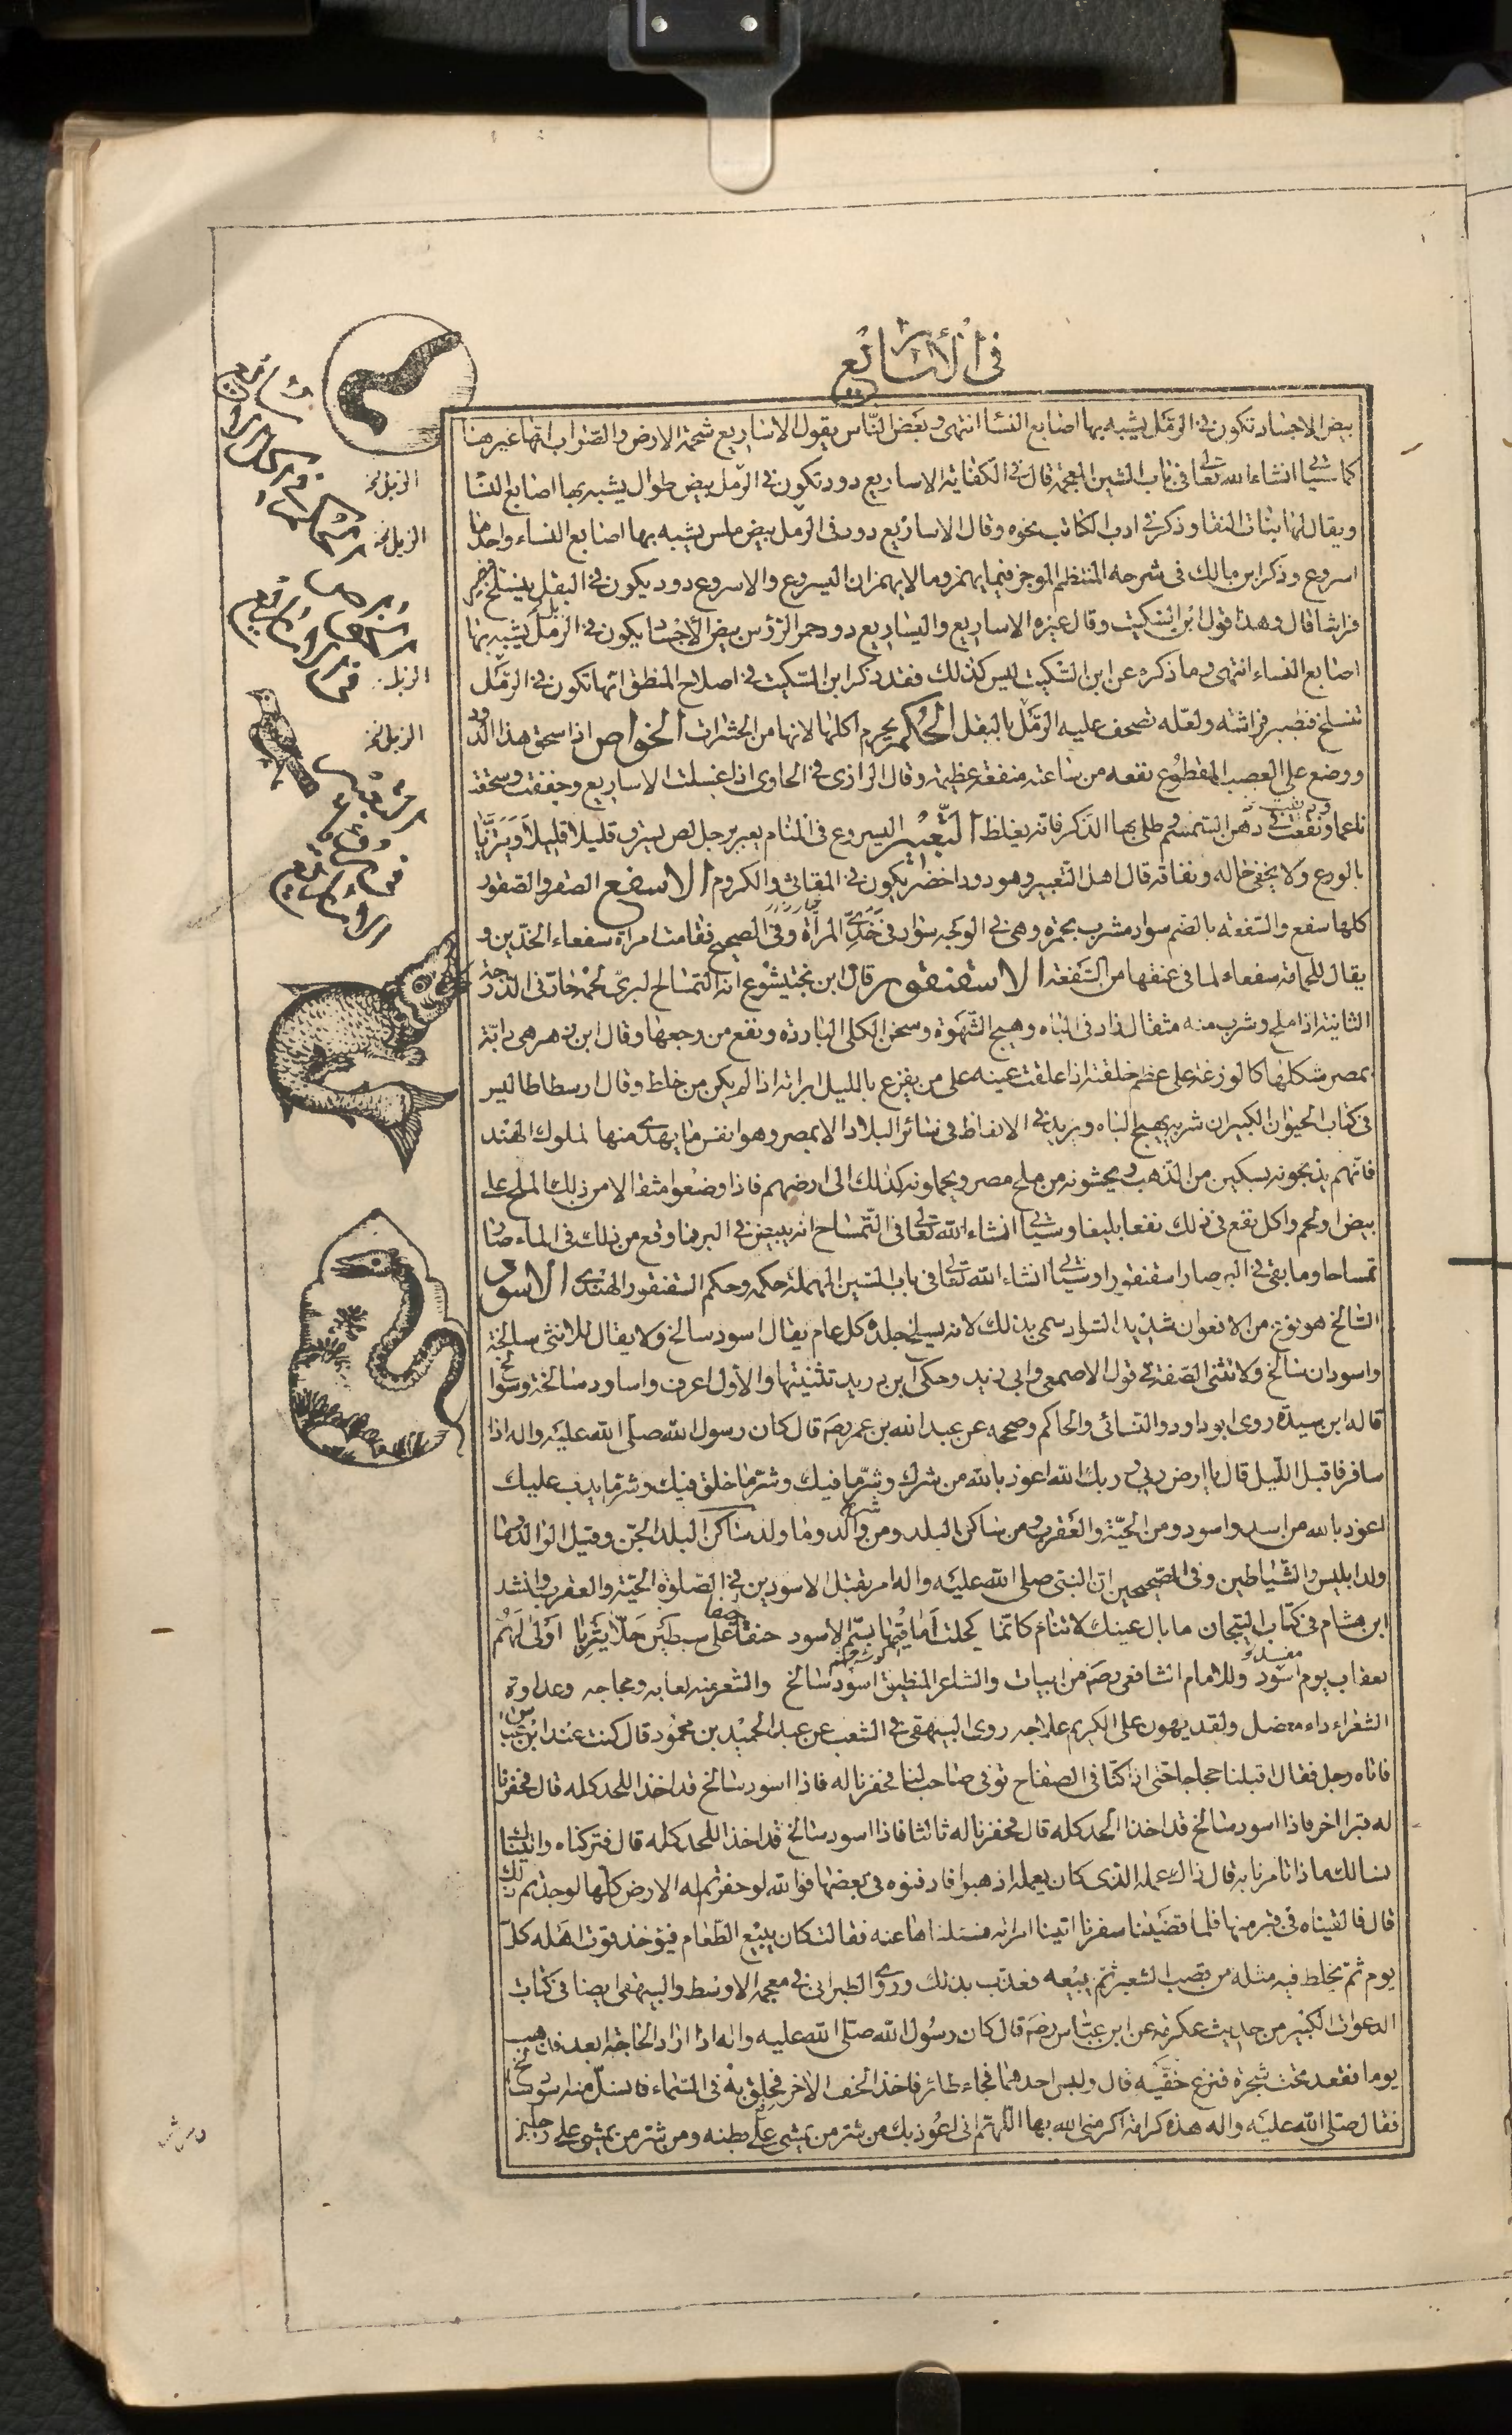 في الأساريع
بيض الاجساد تكون في الرّمل يشبه بها اصابع النسا انتهى وبعض النّاس يقول الاساريع شحمة الارض والصّواب انها غيرها
كما سيأتي انشاء الله تعالى في باب الشين المعجمة قال في الكفاية الاساريع دود تكون في الرّمل بيض طوال يشبه بها اصابع النسا
ويقال لها بنات النقا وذكر في ادب الكاتب نحوه وقال الاساريع دود في الرّمل بيض ملس يشبه بها اصابع النساء واحدها
اسروع وذكر ابن مالك في شرحه المنتظم الموجز فيما يهمز وما لا يهمز ان اليسروع والاسروع دود يكون في البقل ينسلخ فيصير
فراشا قال وهذا قول ابن السّكيت وقال غيره الاساريع واليساريع دود حمر الرّؤس بيض الأجساد يكون في الرّمل يشبه بها
اصابع النساء انتهى وما ذكره عن ابن السّكيت ليس كذلك فقد ذكر ابن السّكيت في اصلاح المنطق انها تكون في الرّمل
تنسلخ فتصير فراشة ولعّله تصحف عليه الرّمل بالبقل الحكم يحرم اكلها لانها من الحشرات الخواص اذا سحق هذا الدّود
ووضع على العصب المقطوع نفعه من ساعته منفعة عظيمة وقال الرازى في الحاوى اذا غسلت الاساريع وجففت وسحقت
ناعما ونقعت في دهن السّمسم وطلى بها الذّكر فانه يغلظ التّعبير اليسروع في المنام يعبر برجل لص يسرق قليلا قليلا ويتزيّا
بالورع ولا يخفى حاله ونفاقه قال اهل التعبير وهو دود اخضر يكون في المقاثى والكروم الاسفع الصقر والصقور
كلها سفع والسّفعة بالضم سواد مشرب بحمرة وهى في الوجه سواد في خدّى المرأة وفى الصحيح فقامت امرأة سفعاء الخدّين و
يقال للحمامة سفعاء لما في عنقها من السّفعة الاسقنقور قال ابن بختيشوع انه التمساح البرىّ لحمه حارّ في الدّرجة
الثانية اذا ملح وشرب منه مثقال زاد في الباه وهيج الشّهوة وسخن الكلى الباردة ونفع من وجعها وقال ابن زهر هى دابّة
بمصر شكلها كالوزغة على عظم خلقته اذا علقت عينه على من يفزع بالليل ابرأته اذا لم يكن من خلط وقال ارسطاطاليس
في كتاب الحيوان الكبير ان شربه يهيج الباه ويزيد في الانعاظ في سائر البلاد الا بمصر وهو انفس ما يهدى منها لملوك الهند
فانّهم يذبحونه بسكين من الذّهب ويحشونه من ملح مصر ويحملونه كذلك الى ارضهم فاذا وضعوا مثقالا من ذلك الملح على
بيض او لحم واكل نفع في ذلك نفعا بليغا وسيأتي انشاء الله تعالى في التّمساح انه يبيض في البر فما وقع من ذلك في الماء صار
تمساحا وما بقى في البر صار اسقنقورا وسيأتي انشاء الله تعالى في باب السّين المهملة حكمه وحكم السّقنقور الهندى الاسود
السّالخ هو نوع من الافعوان شديد السّواد سمى بذلك لانه يسلخ جلده كل عام يقال اسود سالخ ولا يقال للانثى سالخة
واسودان سالخ ولا تثنى الصّفة في قول الاصمعى وابى زيد وحكى ابن دريد تثنيتها والأول اعرف واساود سالخة وسوالخ
قاله ابن سيدة روى ابو داود والنسائى والحاكم وصححه عن عبد الله بن عمر رضه قال كان رسول الله صلى الله عليه واله اذا
سافر فاقبل اللّيل قال يا ارض ربى وربك الله اعوذ بالله من شرك وشرّ ما فيك وشرّ ما خلق فيك وشرّ ما يدب عليك
اعوذ بالله من اسد واسود ومن الحيّة والعقرب ومن ساكن البلد ومن شر والد وما ولد ساكن البلد الجن وقيل الوالد وما
ولد ابليس والشياطين وفى الصّحيحين انّ النبى صلى الله عليه واله امر بقتل الاسودين في الصّلوة الحيّة والعقرب وانشد
ابن هشام في كتاب التيجان ما بال عينك لا تنام كانّما كحلت أماقيها بسّم الاسود حنقا على سبطين حلّا يثربا اولى لهم
بعقاب يوم اسود وللامام الشافعى رضه من ابيات والشاعر المنطيق اسود سالخ والشعر منه لعابه ومجاجه وعداوة
الشعراء داء معضل ولقد يهون على الكريم علاجه روى البيهقى في الشعب عن عبد الحميد بن محمود قال كنت عند ابن عباس
فاتاه رجل فقال اقبلنا حجاجا حتى اذا كنّا في الصفاح توفى صاحب لنا فحفرنا له فاذا اسود سالخ قد اخذ اللحد كله قال فحفرنا
له قبرا اخر فاذا اسود سالخ قد اخذ اللحد كله قال فحفرنا له ثالثا فاذا اسود سالخ قد اخذ اللحد كله قال فتركناه واتيناك
نسالك ماذا تامرنا به قال ذاك عمله الذى كان يعمل اذهبوا فادفنوه في بعضها فوالله لو حفرتم له الارض كلّها لوجدتم ذلك
قال فالقيناه في قبر منها فلما قضينا سفرنا اتينا امراته فسئلناها عنه فقالت كان يبيع الطّعام فيؤخذ قوت اهله كلّ
يوم ثمّ يخلط فيه مثله من قصب الشعير ثمّ يبيعه فعذب بذلك وروى الطبرانى في معجمه الاوسط والبيهقى ايضا في كتاب
الدعوات الكبير من حديث عكرمة عن ابن عبّاس رضه قال كان رسول الله صلى الله عليه واله اذا اراد الحاجة ابعد فذهب
يوما فقعد تحت شجرة فنزع خفّيه قال ولبس احدهما فجاء طائر فاخذ الخف الاخر فحلق به في السّماء فانسلّ منه اسود سالخ
فقال صلى الله عليه واله هذه كرامة اكرمنى الله بها اللّهم انى اعوذ بك من شر من يمشى على بطنه ومن شر من يمشى على رجلين